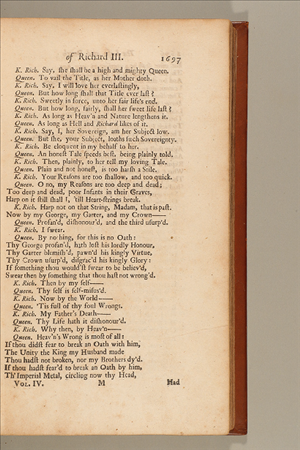 of Richard III. 1697
K. Rich. Say, she shall be a high and mighty Queen.
Queen. To vail the Title, as her Mother doth.
K. Rich. Say, I will love her everlastingly,
Queen. But how long shall that Title ever last?
K. Rich. Sweetly in force, unto her fair life's end.
Queen. But how long, fairly, shall her sweet life last?
K. Rich. As long as Heav'n and Nature lengthens it.
Queen. As long as Hell and Richard likes of it.
K. Rich. Say, I, her Sovereign, am her Subject low.
Queen. But she, your Subject, loaths such Sovereignty.
K. Rich. Be eloquent in my behalf to her.
Queen. An honest Tale speeds best, being plainly told.
K. Rich. Then, plainly, to her tell my loving Tale.
Queen. Plain and not honest, is too harsh a Stile.
K. Rich. Your Reasons are too shallow, and too quick.
Queen. O no, my Reasons are too deep and dead;
Too deep and dead, poor Infants in their Graves,
Harp on it still shall I, 'till Heart-strings break.
K. Rich. Harp not on that String, Madam, that is past.
Now by my George, my Garter, and my Crown——
Queen. Profan'd, dishonour'd, and the third usurp'd.
K. Rich. I swear.
Queen. By nothing, for this is no Oath:
Thy George profan'd, hath lost his lordly Honour,
Thy Garter blemish'd, pawn'd his kingly Virtue,
Thy Crown usurp'd, disgrac'd his kingly Glory:
If something thou would'st swear to be believ'd,
Swear then by something that thou hast not wrong'd.
K. Rich. Then by my self——
Queen. Thy self is self-misus'd.
K. Rich. Now by the World——
Queen. 'Tis full of thy foul Wrongs.
K. Rich. My Father's Death——
Queen. Thy Life hath it dishonour'd.
K. Rich. Why then, by Heav'n——
Queen. Heav'n's Wrong is most of all:
If thou didst fear to break an Oath with him,
The Unity the King my Husband made
Thou hadst not broken, nor my Brothers dy'd.
If thou hadst fear'd to break an Oath by him,
Th' Imperial Metal, circling now thy Head,
Vol. IV. M Had